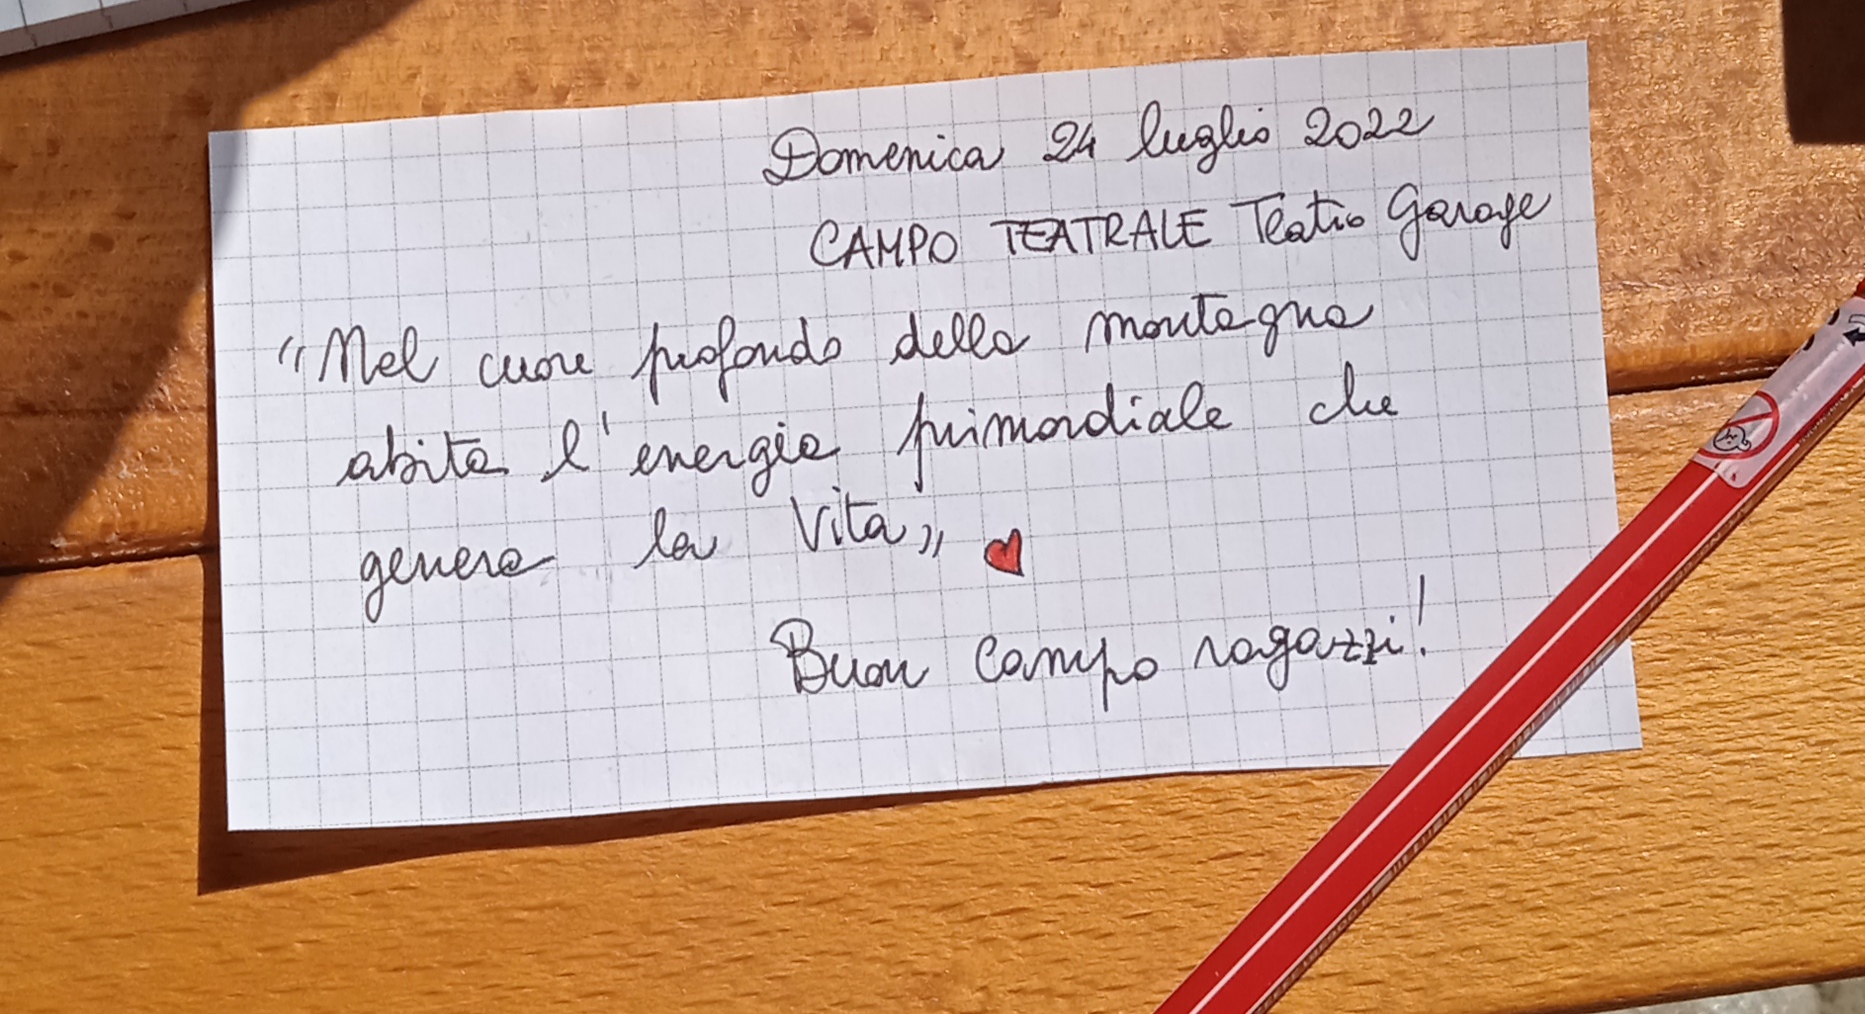 Domenica 24 luglio 2022
CAMPO TEATRALE Teatro Garage
"Nel cuore profondo della montagna
abita l'energia primordiale che
genera la Vita"
Buon campo ragazzi!